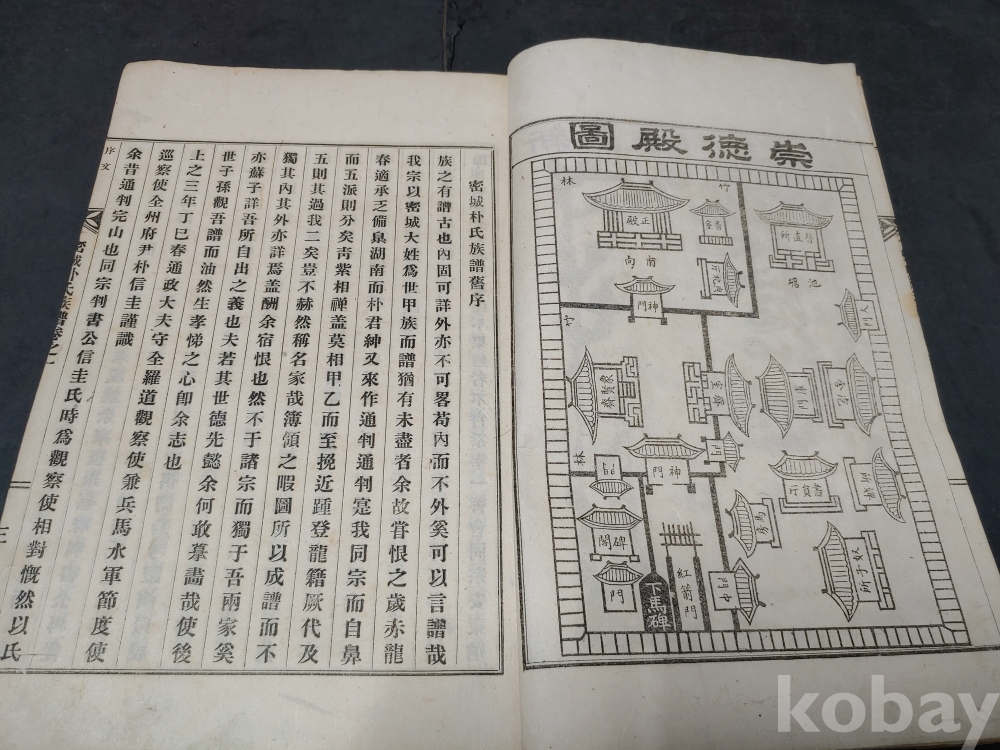 崇德殿圖
竹
林
正殿
香室
齋直所
典祀斤
池塘
南向
神門
雲
大門
象賢齋
東齋
庫門
林
神門
小門
書員斤
馬房
碑閣
門
紅箭門
下馬碑
中門
奴子所
密城朴氏族譜舊序
族之有譜古也內固可詳外亦不可畧苟內而不外奚可以言譜哉
我宗以密城大姓爲世甲族而譜猶有未盡者余故甞恨之歲赤龍
春適承乏備臬湖南而朴君紳又來作通判通判寔是我同宗而自鼻
而五派則分矣靑紫相禪盖莫相甲乙而至挽近踵登龍籍厥代及
五則其過我二矣豈不赫然稱名家哉簿領之暇圖所以成譜而不
獨其內其外亦詳焉盖酬余宿恨也然不于諸宗而獨于吾兩家奚
亦蘇子詳吾所自出之義也夫若其世德先懿余何敢摹畵哉使後
世子孫觀吾譜而油然生孝悌之心卽余志也
上之三年丁巳春通政大夫守全羅道觀察使兼兵馬水軍節度使
巡察使全州府尹朴信圭謹識
余昔通判完山也同宗判書公信圭氏時爲觀察使相對慨然以氏
序文
密城朴氏族譜卷之一
三
kobay